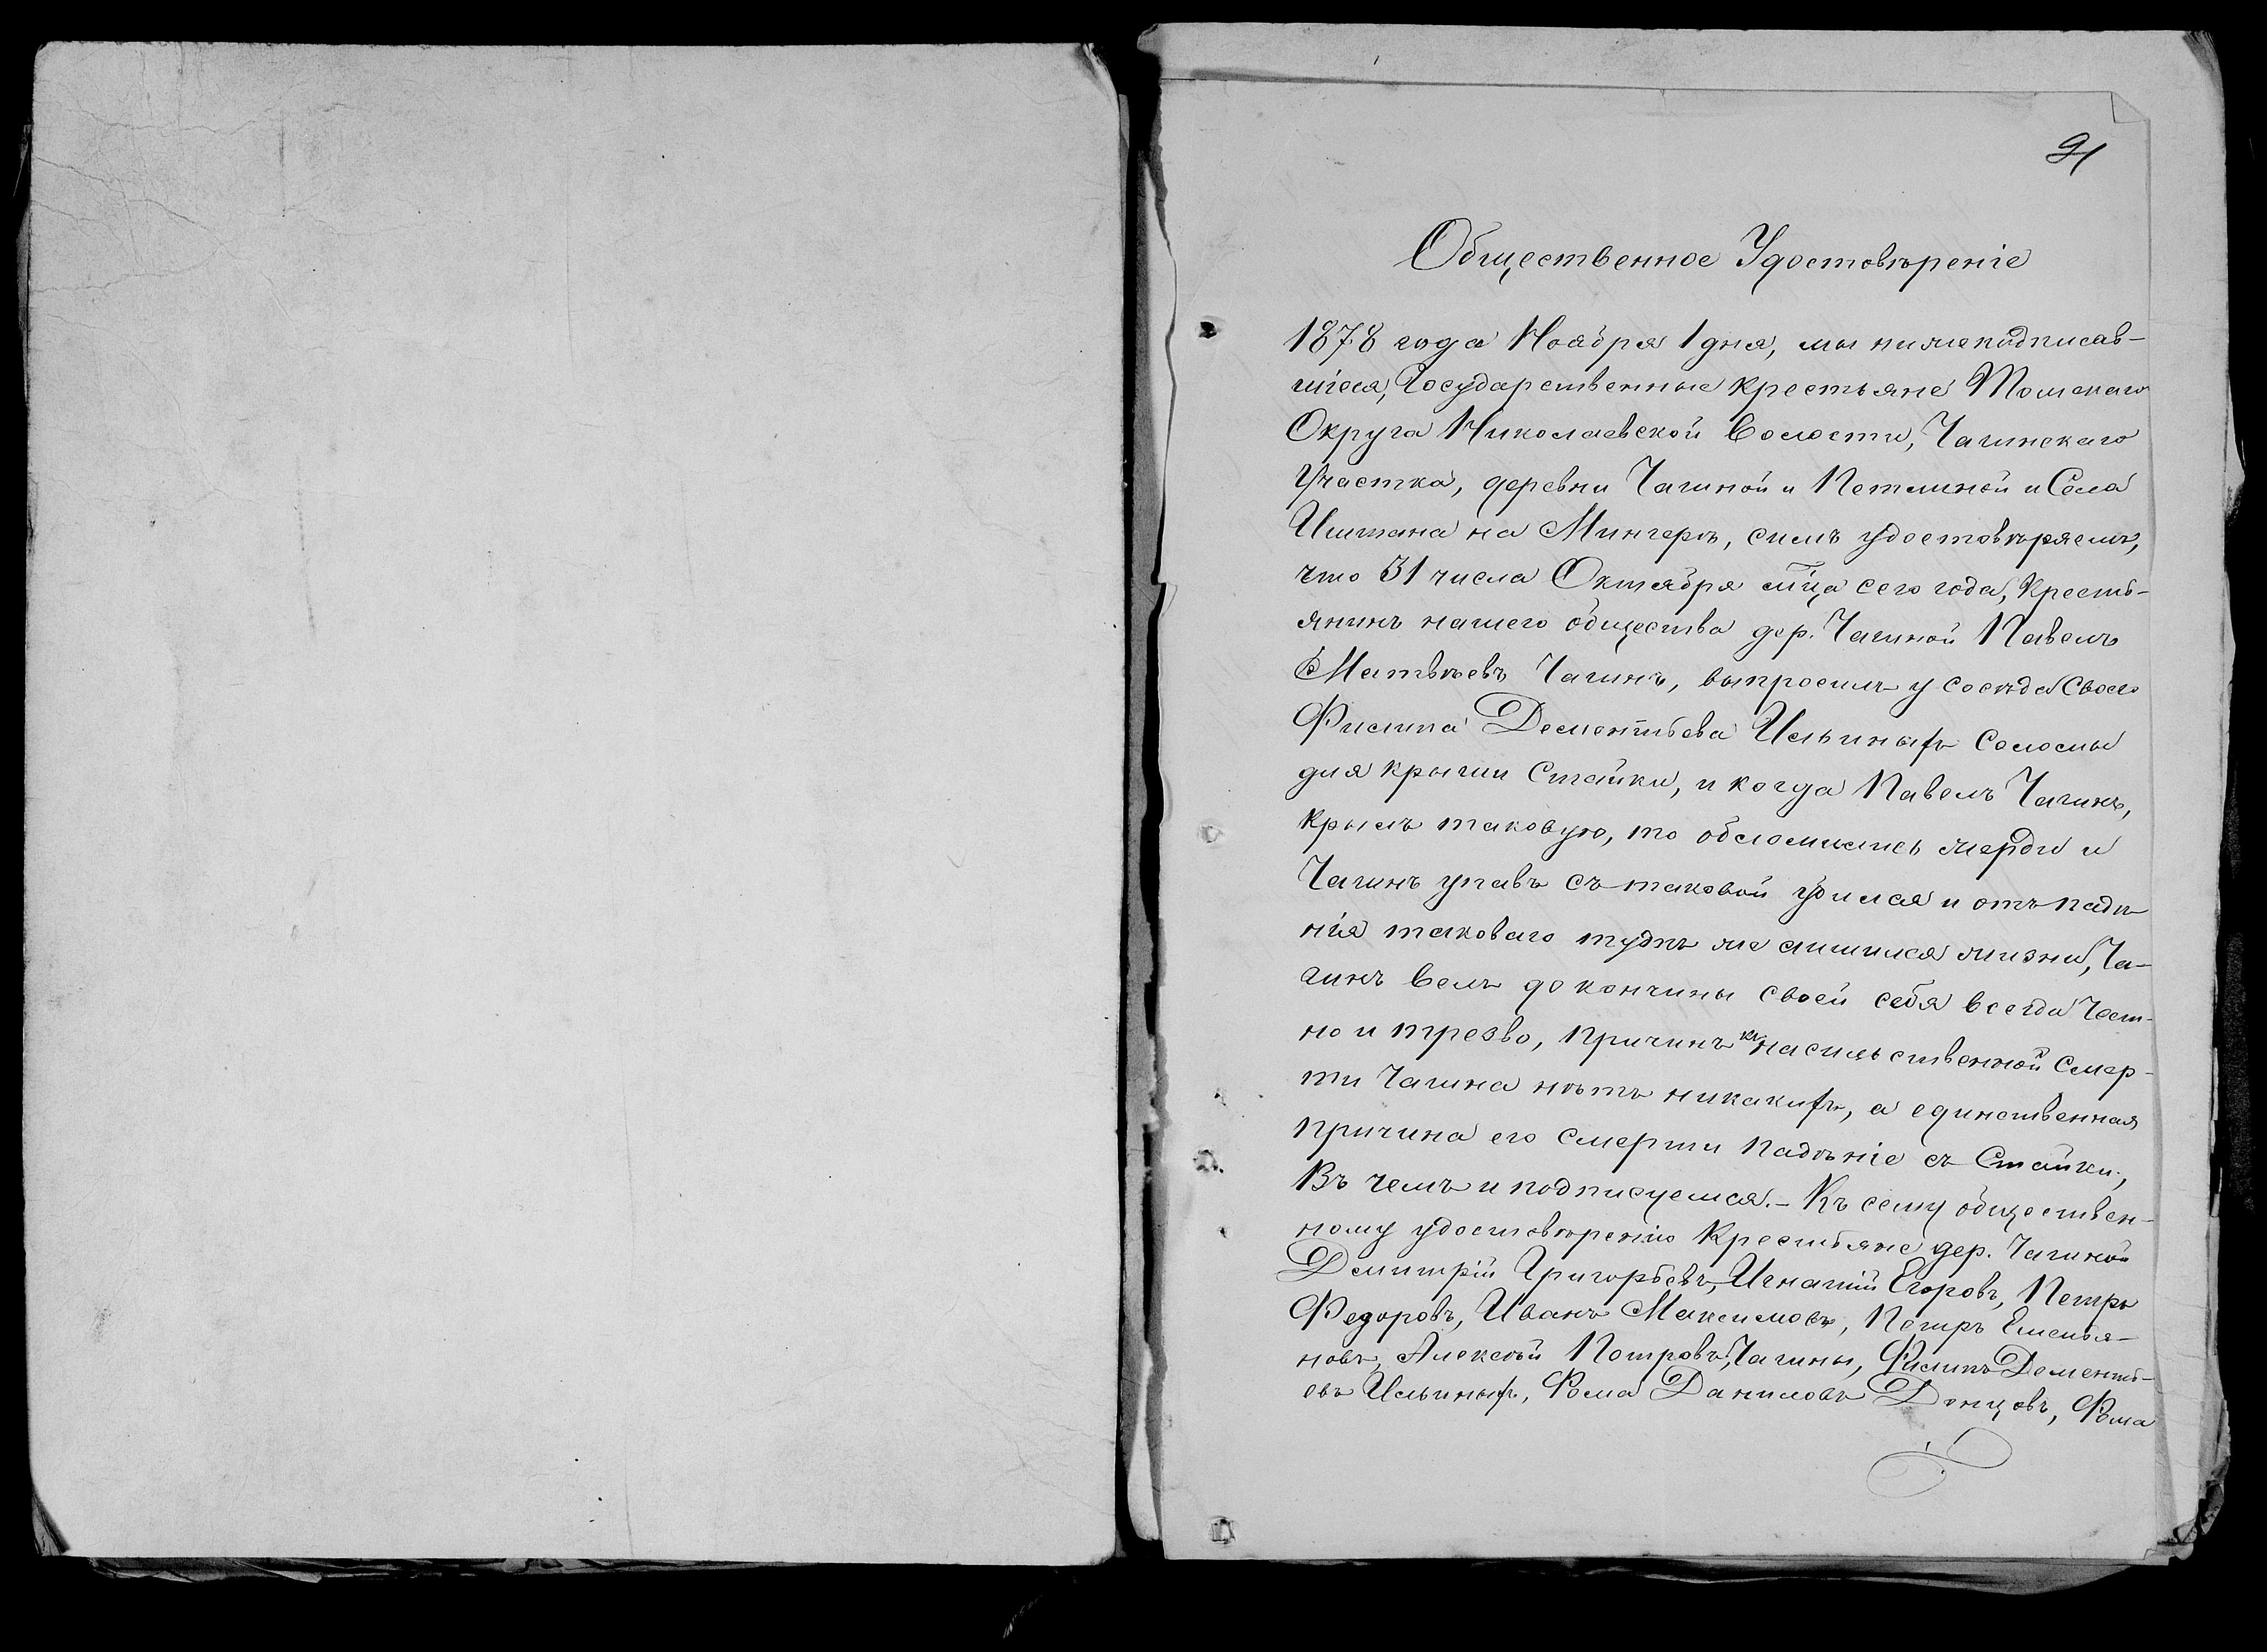 91
Общественное Удостовѣреніе
1878 года Ноября 1 дня, мы нижеподписав-
шіеся, Государственные крестьяне Томскаго
Округа Николаевской Волости, Чагинскаго
Участка, деревни Чагиной и Петлиной и Села
Иштана на Мингерѣ, симъ удостовѣряемъ,
что 31 числа Октября мѣца сего года, Кресть-
янинъ нашего общества дер. Чагиной Павелъ
Матвѣевъ Чагинъ, выпросилъ у сосѣда своего
Филипа Дементьева Ильиныхъ Соломы
для крыши Стайки, и когда Павелъ Чагинъ,
крылъ таковую, то обломились жерди и
Чагинъ упавъ съ таковой убился и отъ падѣ
нія таковаго тудтъ же лишился жизни, Ча-
гинъ велъ до кончины своей себя всегда Чест-
но и трезво, причинъ къ насильственной Смер-
ти Чагина нѣтъ никакихъ, а единственная
причина его смерти падѣніе съ Стайки,
Въ чемъ и подписуемся. - Къ сему обществен-
ному удостовѣренію Крестьяне дер. Чагиной
Дмитрій Григорьевъ, Игнатій Егоровъ, Петръ
Федоровъ, Иванъ Максимовъ, Петръ Емелья-
новъ, Алексѣй Петровъ, Чагины, Филипъ Дементь-
евъ Ильиныхъ, Фома Даниловъ Донцовъ, Фома